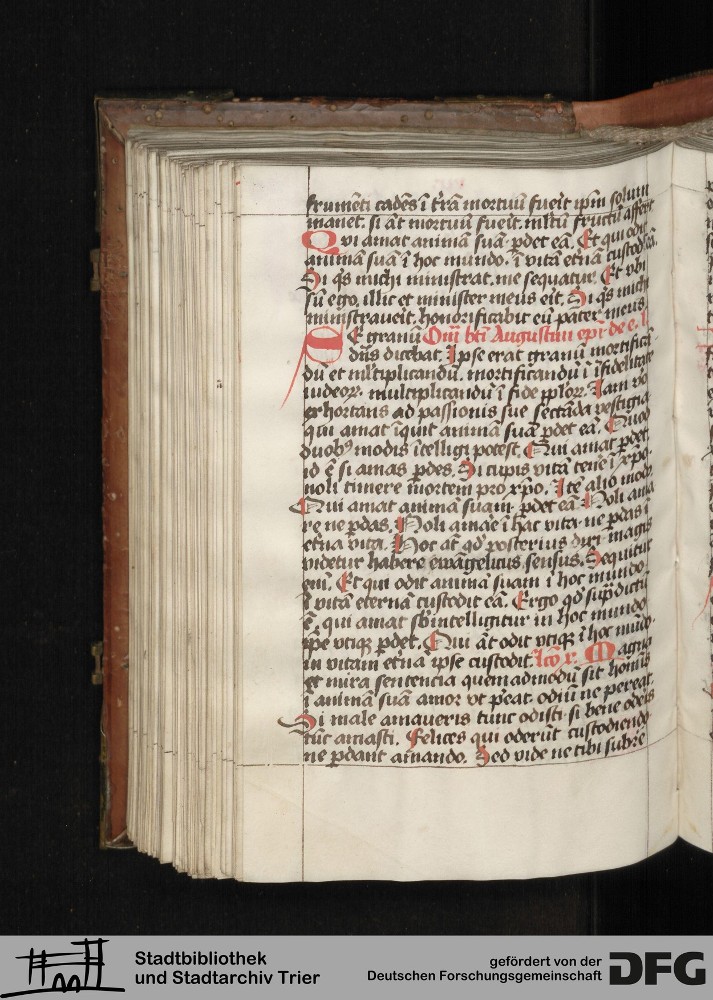 frumēti cadēs ī t̄rā mortuū fuerit ipm̄ solum
manet. si āt mortuū fuerit. mltū fructū affert
Qvi amat animā suā p̱det eā. Et qui odit
animā suā ī hoc mundo. ī vitā etnā custodit eā.
Si q̄s michi ministrat. me sequatur. Et vbi
sū ego. illic et minister meus erit. Si q̄s michi
ministraverit. honorificabit eū pater meus.
Se granū Om̄ bt̄i Augustini ep̄i de e. l.
dn̄s dicebat. Ipse erat granū mortificā
dū et mltiplicandū. mortificandū ī īfidelitate
iudeoꝝ. multiplicandū ī fide pplōꝝ. Iam vō
exhortans ad passionis sue sectāda vestigia
qui amat īquit animā suā p̱det eā. Quod
duobꝰ modis ītelligi potest. Qui amat p̱det.
id ē si amas p̱des. Si cupis vitā tenē ī xp̄o.
noli timere mortem pro xp̄o. Itē alio modo
Qui amat animā suam p̱det eā. Noli ama
re ne p̱das. Noli amāe ī hac vita. ne p̱das ī
etnā vitā. Hoc āt qd̄ posterius dixi. magis
videtur habere ewāgelicus sensus. Sequitur
eni. Et qui odit animā suam ī hoc mundo
ī vitā eternā custodit eā. Ergo qd̄ supͣdictū
ē. qui amat sb̄intelligitur in hoc mundo
ip̄e vtiqꝫ p̱det. Qui āt odit vtiqꝫ ī hoc mūdo.
in vitam etnā ipse custodit. lcō x. Magna
et mira sentencia quemadmodū sit homīs
ī animā suā amor vt p̱eat. odiū ne pereat.
Si male amaveris tunc odisti. si bene oderis
tūc amasti. Felices qui oderūt custodiendo
ne p̱dant amando. Sed vide ne tibi subre
Stadtbibliothek
und Stadtarchiv Trier
gefördert von der
Deutschen Forschungsgemeinschaft
DFG